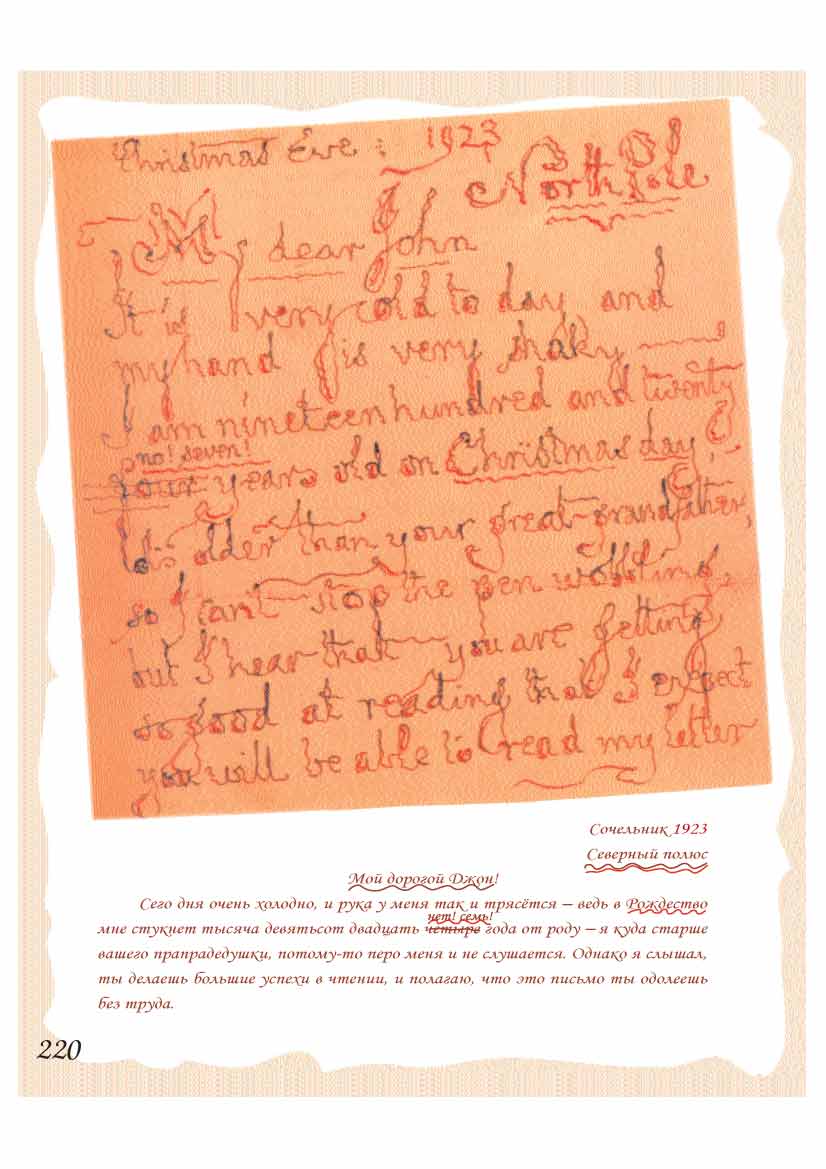 Christmas Eve : 1923
North Pole
My dear John
It is very cold to day and
my hand is very shaky
I am nineteen hundred and twenty
no! seven!
four years old on Christmas day,
I is older than your great-grandfather,
so I can't stop the pen wobbling,
but I hear that you are getting
so good at reading that I expect
you will be able to read my letter
Сочельник 1923
Северный полюс
Мой дорогой Джон!
Сего дня очень холодно, и рука у меня так и трясётся — ведь в Рождество
нет! семь!
мне стукнет тысяча девятьсот двадцать четыре года от роду — я куда старше
вашего прапрадедушки, потому-то перо меня и не слушается. Однако я слышал,
ты делаешь большие успехи в чтении, и полагаю, что это письмо ты одолеешь
без труда.
220